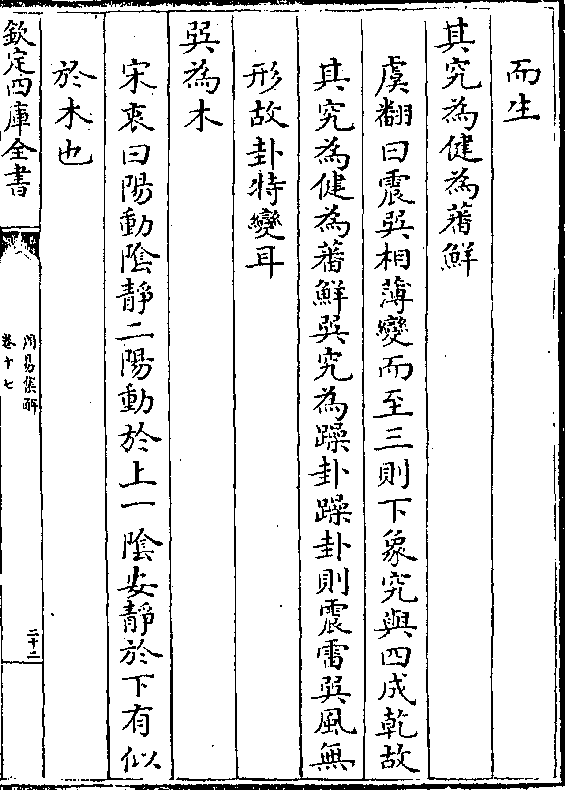 而生
其究為健為蕃鮮
虞翻曰震巽相薄變而至三則下象究與四成乾故
其究為健為蕃鮮巽究為躁卦躁卦則震雷巽風無
形故卦特變耳
巽為木
宋衷曰陽動隂靜二陽動於上一隂安靜於下有似
於木也
欽定四庫全書
周易集解
卷十七
二十二